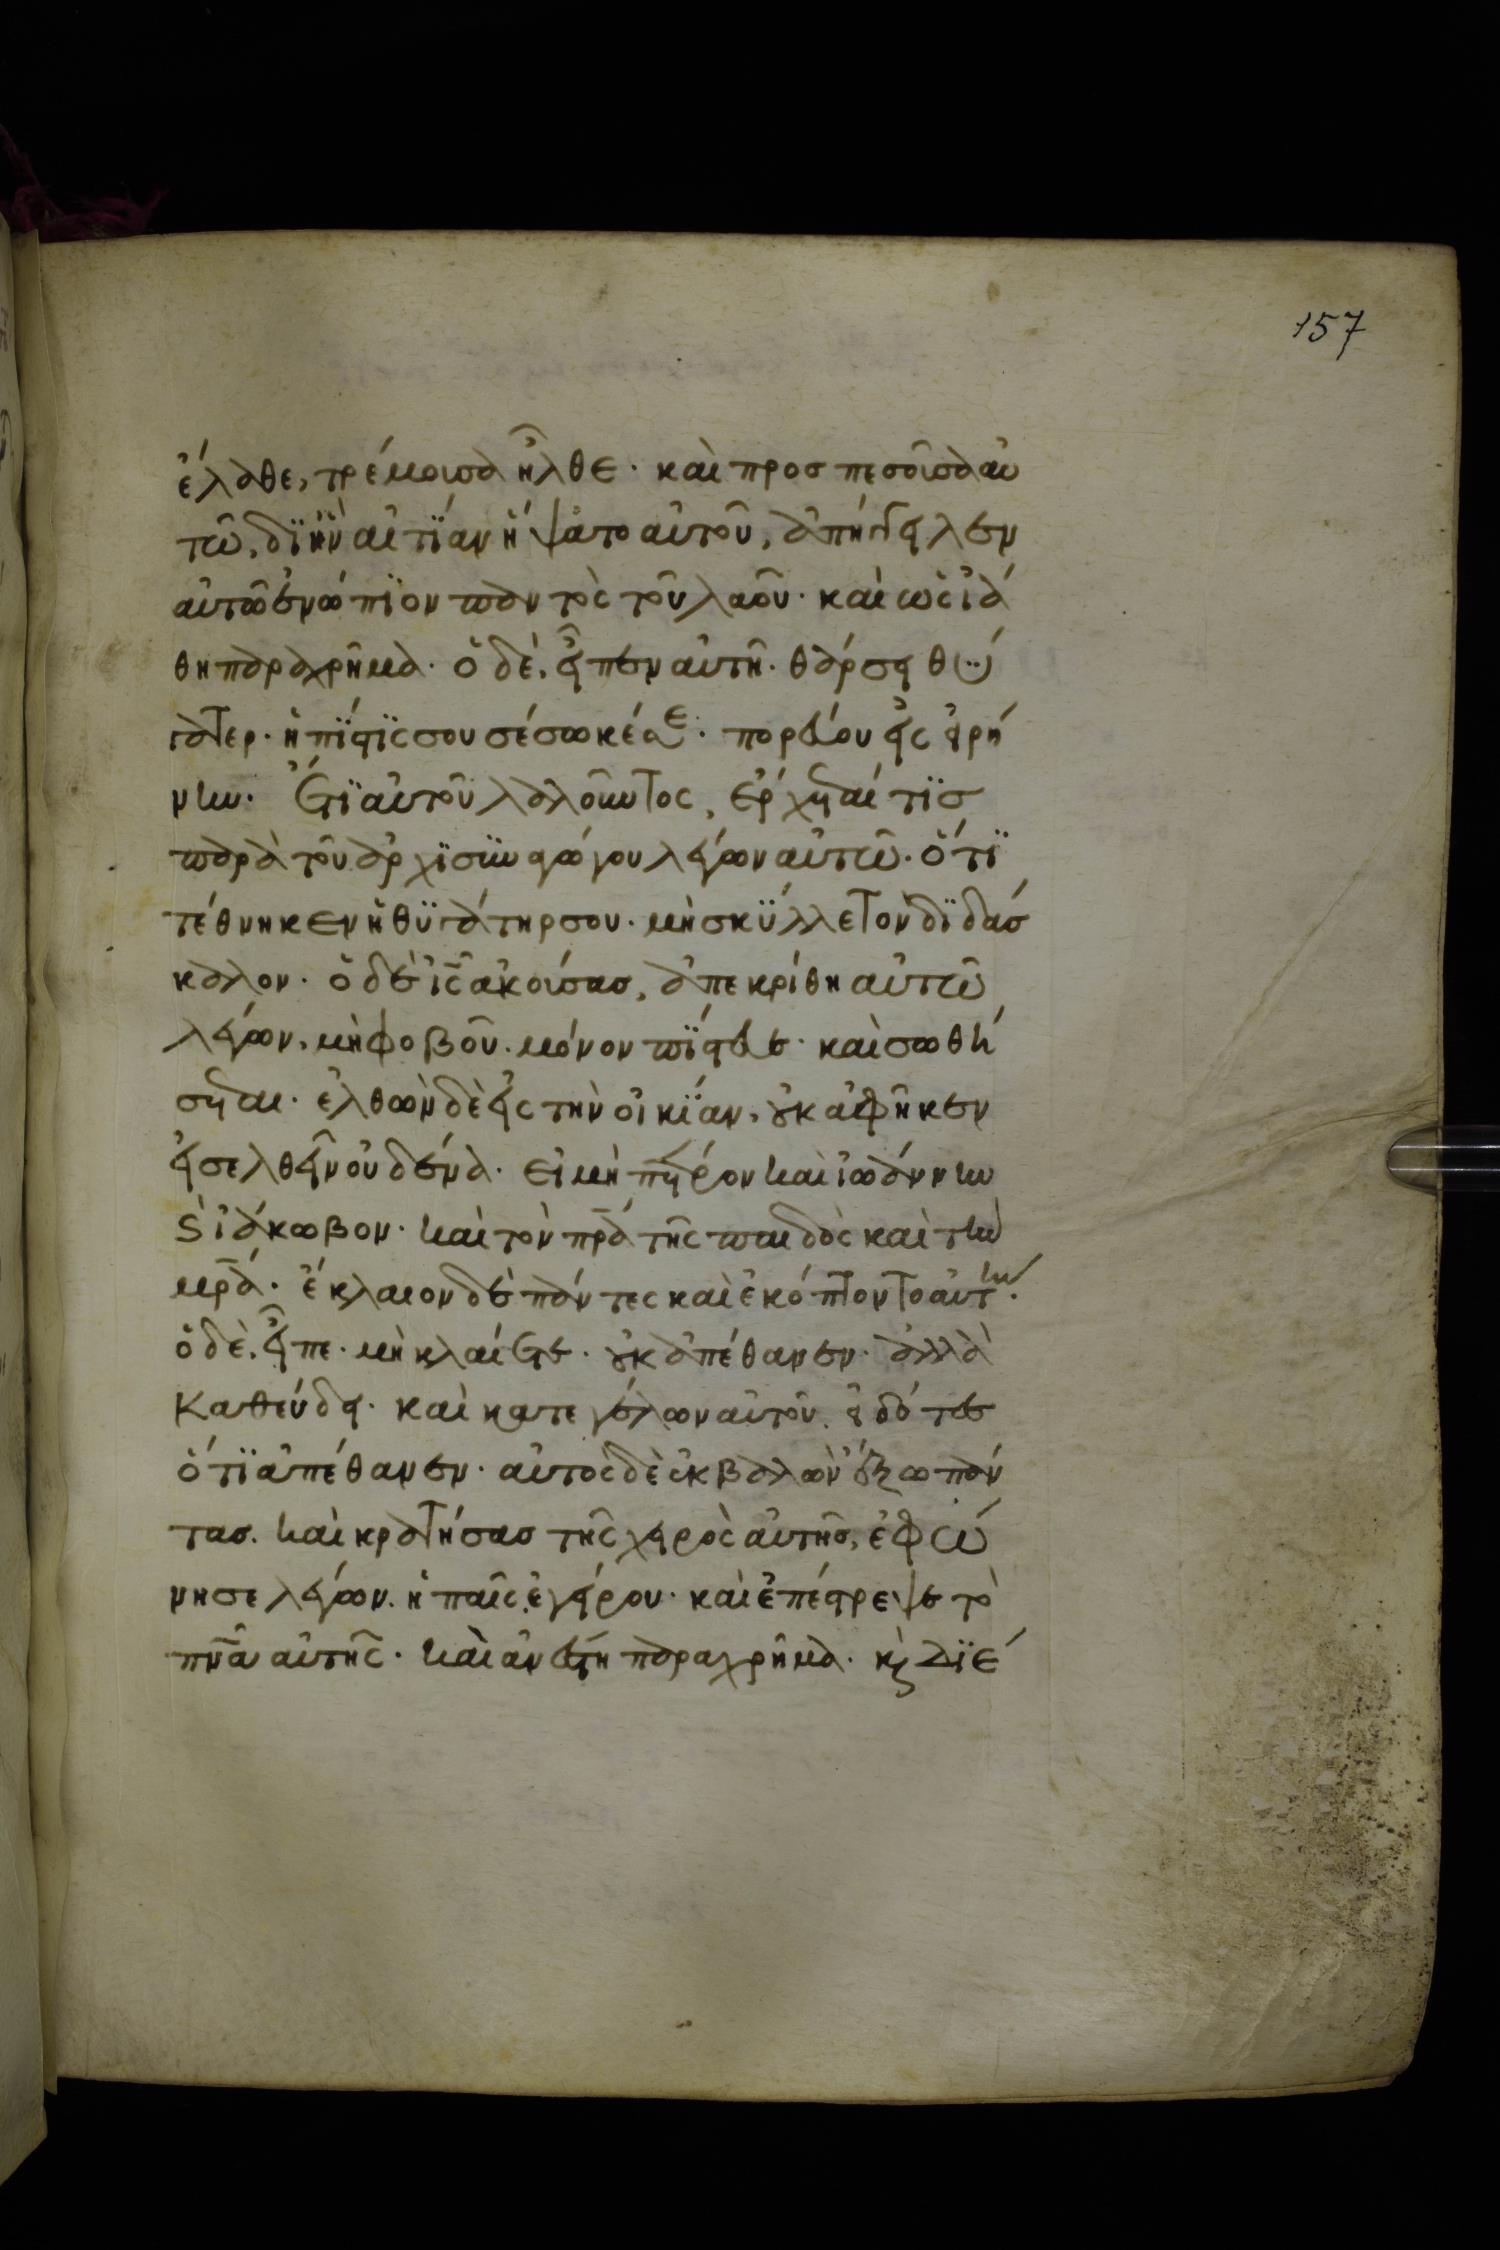 157
ἔλαθε, τρέμουσα ἦλθε· καὶ προσπεσοῦσα αὐ
τῶ, δϊ ἣν αἰτΐαν ἥψατο αὐτοῦ, ἀπήγγειλεν
αὐτῶ ἐνώπϊον παντὸς τοῦ λαοῦ· καὶ ὡς ἰά
θη παραχρῆμα· ὁ δὲ, εἶπεν αὐτῆ· θάρσει θύ
γατερ· ἡ πΐστϊς σου σέσωκέ σε· πορεύου εἰς εἰρή
νην· Ἔτϊ αὐτοῦ λαλοῦντος, ἔρχεταί τϊσ
παρὰ τοῦ ἀρχϊσυναγώγου λέγων αὐτῶ· ὅτϊ
τέθνηκεν ἡ θϋγάτηρ σου· μὴ σκΰλλε τὸν δϊδάσ
καλον· ὁ δὲ ις ἀκούσας, ἀπεκρίθη αὐτῶ
λέγων, μὴ φοβοῦ· μόνον πΐστευε· καὶ σωθή
σεται· ἐλθὼν δὲ εἰς τὴν οἰκΐαν, οὐκ ἀφῆκεν
εἰσελθεῖν οὐδένα· εἰ μὴ πέτρον καὶ ἰωάννην
ϗ ἰάκωβον· καὶ τὸν πρα τῆς παιδὸς καὶ τὴν
μρα· ἔκλαιον δὲ πάντες καὶ ἐκόπτοντο αὐτήν·
ὁ δὲ, εἶπε· μὴ κλαίετε· οὐκ ἀπέθανεν· ἀλλὰ
καθεύδει· καὶ κατεγέλων αὐτοῦ, εἰδότες
ὅτϊ ἀπέθανεν· αὐτὸς δὲ ἐκβαλὼν ἔξω πάν
τας. καὶ κρατήσας τῆς χειρὸς αὐτῆς, ἐφώ
νησε λέγων. ἡ παῖς, ἐγείρου· καὶ ἐπέστρεψε τὸ
πνα αὐτῆς· καὶ ἀνέστη παραχρῆμα· ϗ δϊέ